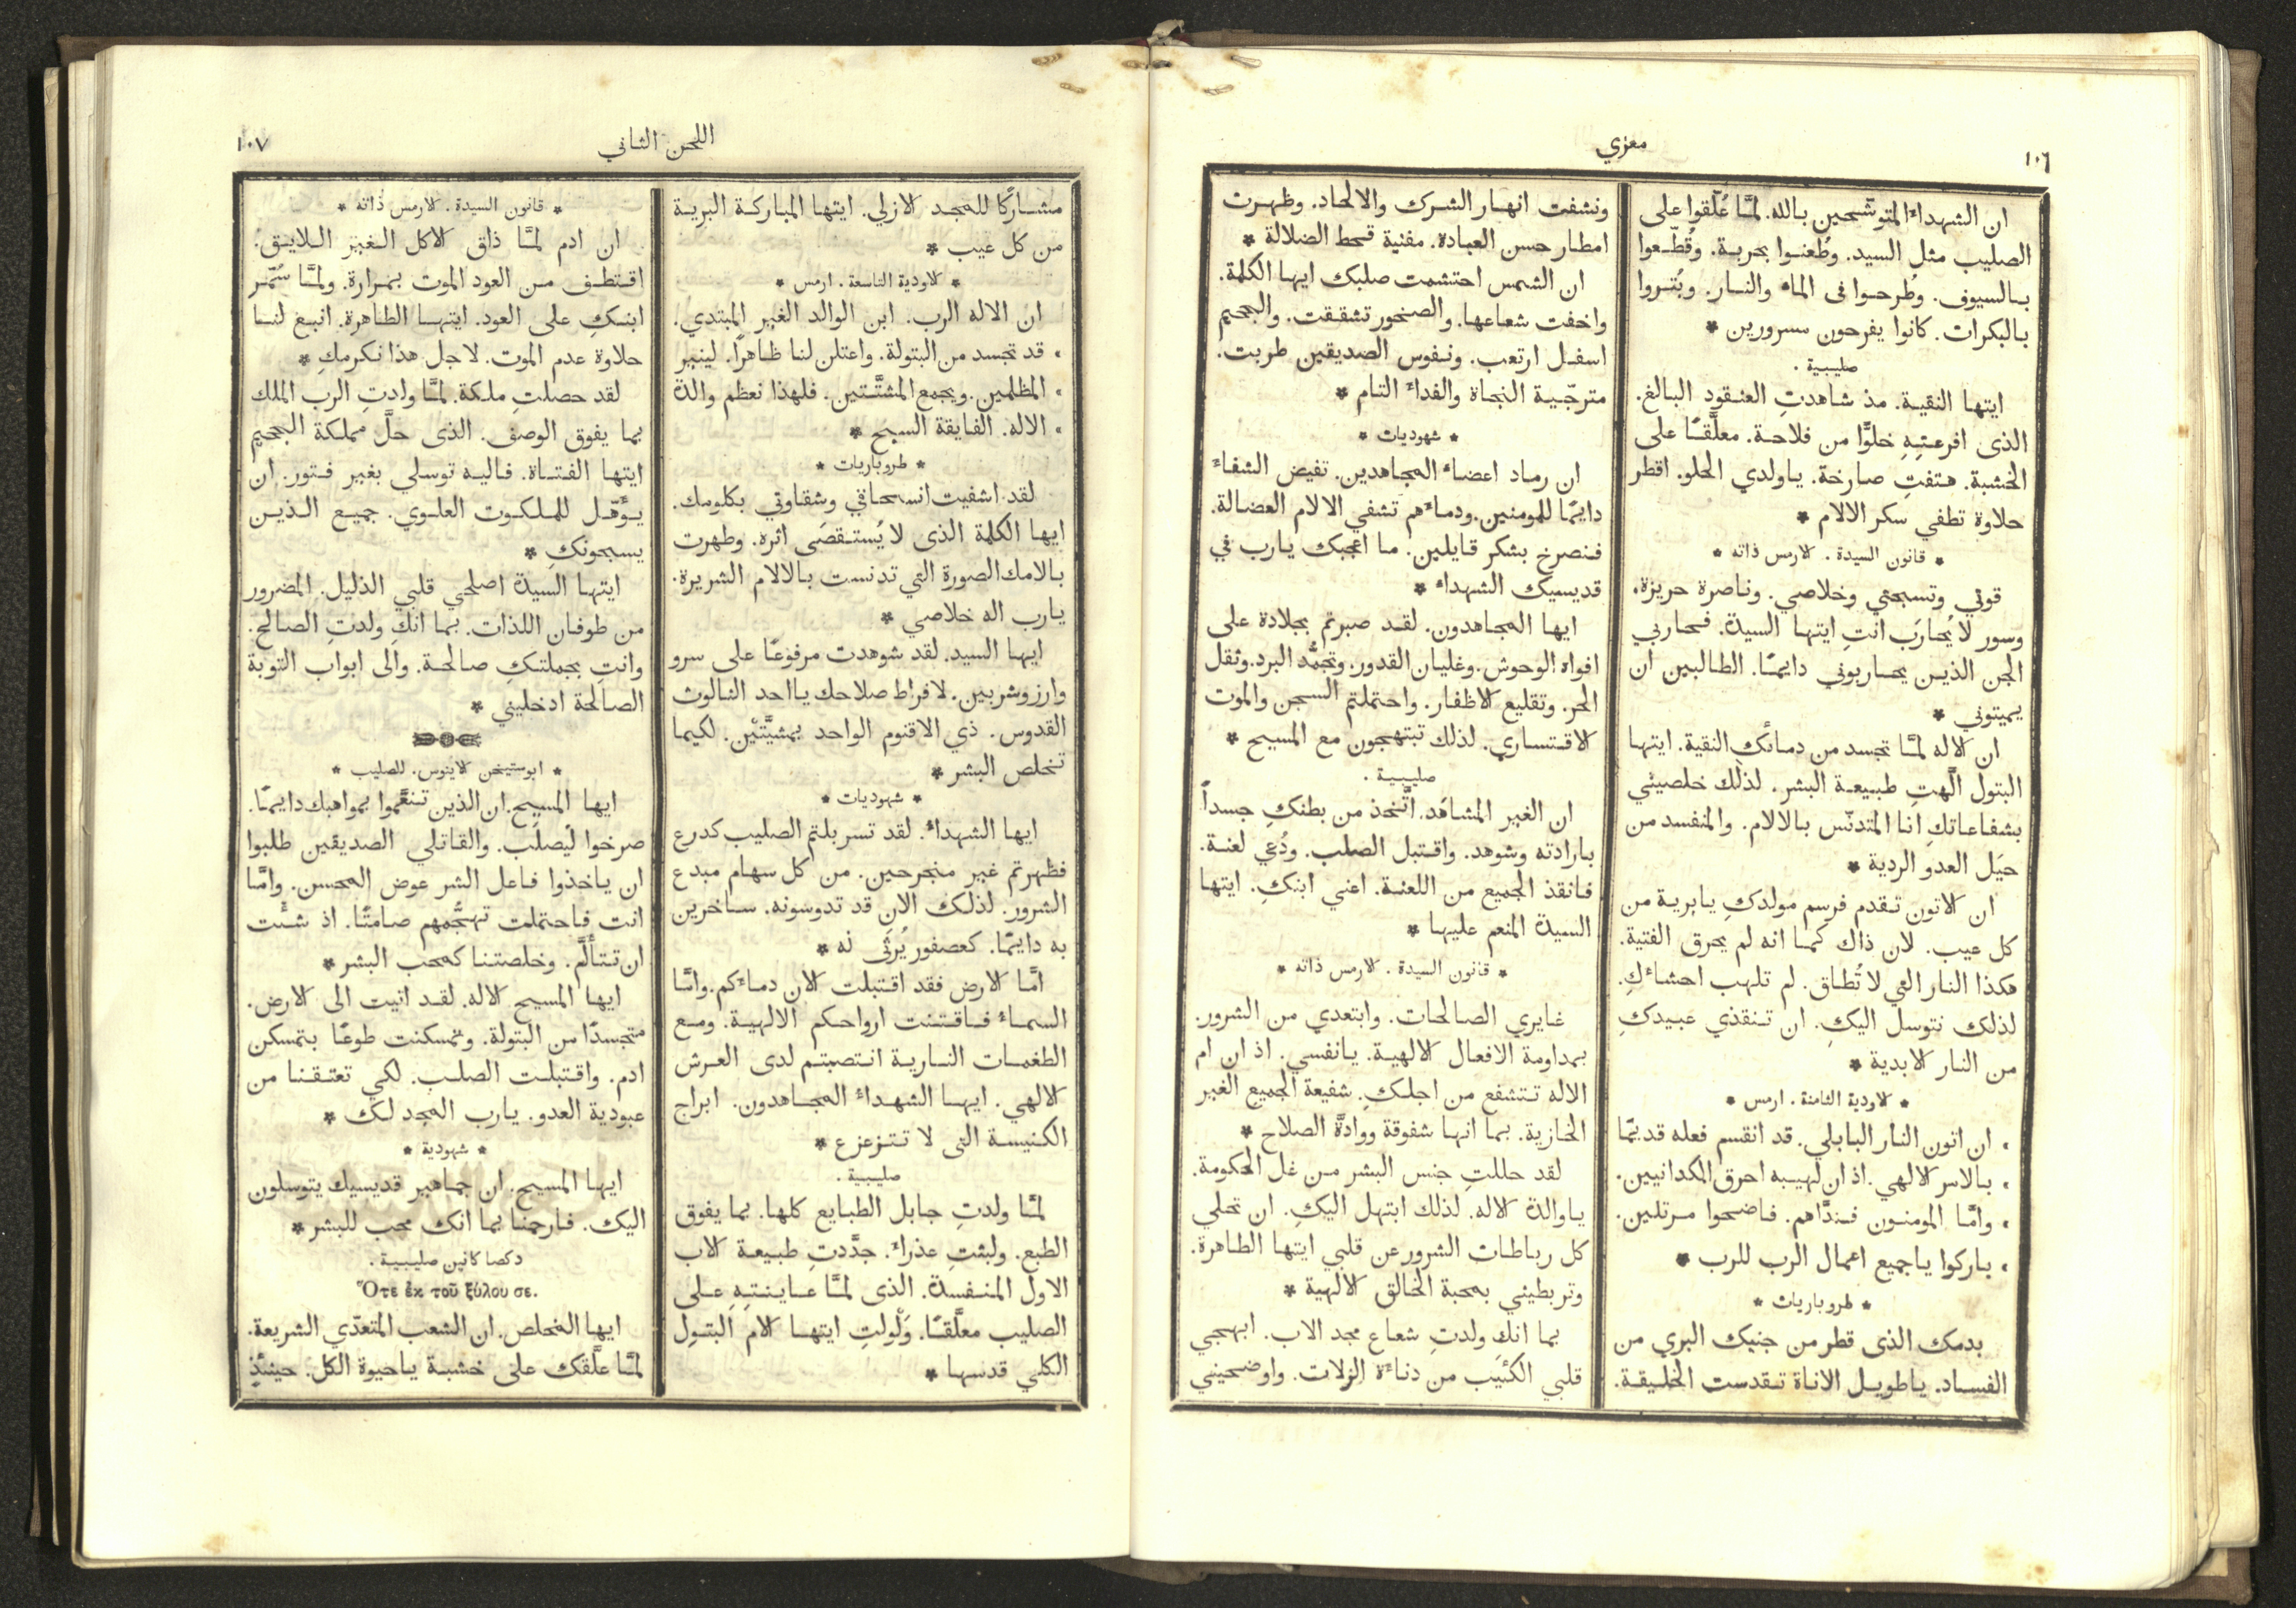 ١٠٦
معزي
ان الشهداءَ المتوشّحين بالله. لمَّا عُلّقوا على
الصليب مثل السيد. وطُعنوا بحربة. وقُطّعوا
بالسيوف. وطُرحوا فى الماء والنار. وبُتروا
بالبكرات. كانوا يفرحون مسرورين *
صليبية .
ايتها النقية. مذ شاهدتِ العنقود البالغ.
الذى افرعتِهِ خلوًّا من فلاحة. معلَّقًا على
الخشبة. هتفتِ صارخة. ياولدي الحلو. اقطر
حلاوة تطفي سكر الالام *
* قانون السيدة . الارمس ذاته *
قوتي وتسبحتي وخلاصي. وناصرة حريزة.
وسور لا يُحارَب انتِ ايتها السيدة. فحاربي
الجن الذين يحاربوني دايمًا. الطالبين ان
يميتوني *
ان الاله لمَّا تجسد من دمائكِ النقية. ايتها
البتول الَّهتِ طبيعة البشر. لذلك خلصيني
بشفاعاتكِ انا المتدنّس بالالام. والمنفسد من
حيَل العدو الردية *
ان الاتون تقدم فرسم مولدكِ يابرية من
كل عيب. لان ذاك كما انه لم يحرق الفتية.
هكذا النار التي لا تُطاق. لم تلهب احشاءكِ.
لذلك نتوسل اليكِ. ان تنقذي عبيدكِ
من النار الابدية *
* الاودية الثامنة . ارمس *
. ان اتون النار البابلي. قد انقسم فعله قديمًا
. بالامر الالهي. اذ ان لهيبه احرق الكلدانيين.
. وامَّا المومنون فندَّاهم. فاضحوا مرتلين.
. باركوا ياجميع اعمال الرب للرب *
* طروباريات *
بدمك الذى قطر من جنبك البري من
الفساد. ياطويل الاناة تقدست الخليقة.
ونشفت انهار الشرك والالحاد. وظهرت
امطار حسن العبادة. مفنية قحط الضلالة *
ان الشمس احتشمت صلبك ايها الكلمة.
واخفت شعاعها. والصخور تشققت. والجحيم
اسفل ارتعب. ونفوس الصديقين طربت.
مترجّية النجاة والفداءَ التام *
* شهوديات *
ان رماد اعضاء المجاهدين. تفيض الشفاءَ
دايمًا للمومنين. ودماءَهم تشفي الالام العضالة.
فنصرخ بشكر قايلين. ما اعجبك يارب في
قديسيك الشهداء *
ايها المجاهدون. لقد صبرتم بجلادة على
افواه الوحوش. وغليان القدور. وتجمُّد البرد. وثقل
الحر. وتقليع الاظفار. واحتملتم السجن والموت
الاقتساري. لذلك تبتهجون مع المسيح *
صليبية .
ان الغير المشاهَد. اتَّخذ من بطنكِ جسداً
بارادته وشوهد. واقتبل الصلب. ودُعي لعنة.
فانقذ الجميع من اللعنة. اعني ابنكِ. ايتها
السيدة المنعم عليها *
* قانون السيدة . الارمس ذاته *
غايري الصالحات. وابتعدي من الشرور.
بمداومة الافعال الالهية. يانفسي. اذ ان ام
الاله تتشفع من اجلكِ. شفيعة الجميع الغير
الخازية. بما انها شفوقة ووادَّة الصلاح *
لقد حللتِ جنس البشر من غل الحكومة.
ياوالدة الاله. لذلك ابتهل اليكِ. ان تحلي
كل رباطات الشرور عن قلبي ايتها الطاهرة.
وتربطيني بمحبة الخالق الالهية *
بما انكِ ولدتِ شعاع مجد الاب. ابهجي
قلبي الكئيب من دناءَة الزلات. واوضحيني
اللحن الثاني
١٠٧
مشاركًا للمجد الازلي. ايتها المباركة البرية
من كل عيب *
* الاودية التاسعة . ارمس *
ان الاله الرب. ابن الوالد الغير المبتدي.
. قد تجسد من البتولة. واعتلن لنا ظاهرًا. لينير
. المظلمين. ويجمع المشتَّتين. فلهذا نعظم والدة
. الاله. الفايقة السبح *
* طروباريات *
لقد اشفيت انسحاقي وشقاوتي بكلومك.
ايها الكلمة الذى لا يُستقصَى اثره. وطهرت
بالامك الصورة التي تدنست بالالام الشريرة.
يارب اله خلاصي *
ايها السيد. لقد شوهدت مرفوعًا على سرو
وارز وشربين. لافراط صلاحك يااحد الثالوث
القدوس. ذي الاقنوم الواحد بمشيَّتَيْن. لكيما
تخلص البشر *
* شهوديات *
ايها الشهداءُ. لقد تسربلتم الصليب كدرع
فظهرتم غير منجرحين. من كل سهام مبدع
الشرور. لذلك الان قد تدوسونه. ساخرين
به دايمًا. كعصفور يُرثَى له *
امَّا الارض فقد اقتبلت الان دماءَكم. وامَّا
السماءُ فاقتنت ارواحكم الالهية. ومع
الطغمات النارية انتصبتم لدى العرش
الالهي. ايها الشهداءُ المجاهدون. ابراج
الكنيسة التى لا تتزعزع *
صليبية .
لمَّا ولدتِ جابل الطبايع كلها. بما يفوق
الطبع. ولبثتِ عذراءَ. جدَّدتِ طبيعة الاب
الاول المنفسدة. الذى لمَّا عاينتِهِ على
الصليب معلَّقًا. وَلْولتِ ايتها الام البتول
الكلي قدسها *
* قانون السيدة . الارمس ذاته *
ان ادم لمَّا ذاق الاكل الغير اللايق.
اقتطف من العود الموت بمرارة. ولمَّا سُمّر
ابنكِ على العود. ايتها الطاهرة. انبع لنا
حلاوة عدم الموت. لاجل هذا نكرمكِ *
لقد حصلتِ ملكة. لمَّا ولدتِ الرب الملك
بما يفوق الوصف. الذى حلَّ مملكة الجحيم
ايتها الفتاة. فاليه توسلي بغير فتور. ان
يؤَهّل للملكوت العلوي. جميع الذين
يسبحونكِ *
ايتها السيدة اصلحي قلبي الذليل. المضرور
من طوفان اللذات. بما انكِ ولدتِ الصالح.
وانتِ بجملتكِ صالحة. والى ابواب التوبة
الصالحة ادخليني *
* ابوستيخن الاينوس. للصليب *
ايها المسيح. ان الذين تنعَّموا بمواهبك دايمًا.
صرخوا ليُصلَب. والقاتلي الصديقين طلبوا
ان ياخذوا فاعل الشر عوض المحسن. وامَّا
انت فاحتملت تهجُّمهم صامتًا. اذ شئت
ان تتألَّم. وخلصتنا كمحب البشر *
ايها المسيح الاله. لقد اتيت الى الارض.
متجسدًا من البتولة. وتمسكنت طوعًا بتمسكن
ادم. واقتبلت الصلب. لكي تعتقنا من
عبودية العدو. يارب المجد لك *
* شهودية *
ايها المسيح. ان جماهير قديسيك يتوسلون
اليك. فارحمنا بما انك محب للبشر *
دكصا كانين صليبية .
Ὅτε ἐκ τοῦ ξύλου σε.
ايها المخلص. ان الشعب المتعدّي الشريعة.
لمَّا علَّقك على خشبة ياحيوة الكل. حينئذٍ